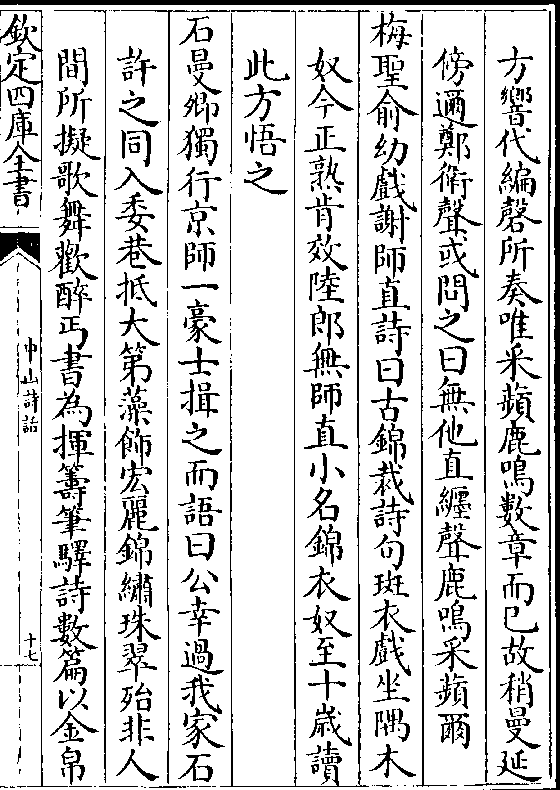 方響代編磬所奏唯采蘋鹿鳴數章而已故稍曼延
傍邇鄭衛聲或問之曰無他直纏聲鹿鳴采蘋爾
梅聖俞幼戲謝師直詩曰古錦裁詩句斑衣戲坐隅木
奴今正熟肯效陸郎無師直小名錦衣奴至十歲讀
此方悟之
石曼卿獨行京師一豪士揖之而語曰公幸過我家石
許之同入委巷抵大第藻飾宏麗錦繡珠翠殆非人
間所擬歌舞歡醉丐書為揮籌筆驛詩數篇以金帛
欽定四庫全書
中山詩話
十七